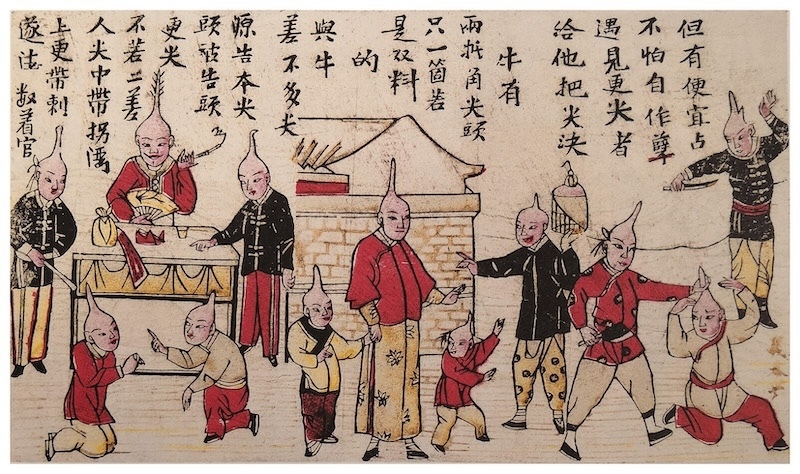 但有便宜占
不怕自作孽
遇見更尖者
給他把尖決
牛有
兩抵角尖頭
只一箇若
是双料
的
與牛
差不多尖
原告本尖
頭被告頭
更尖
不若二差
人尖中帶拐
上更帶刺
着官